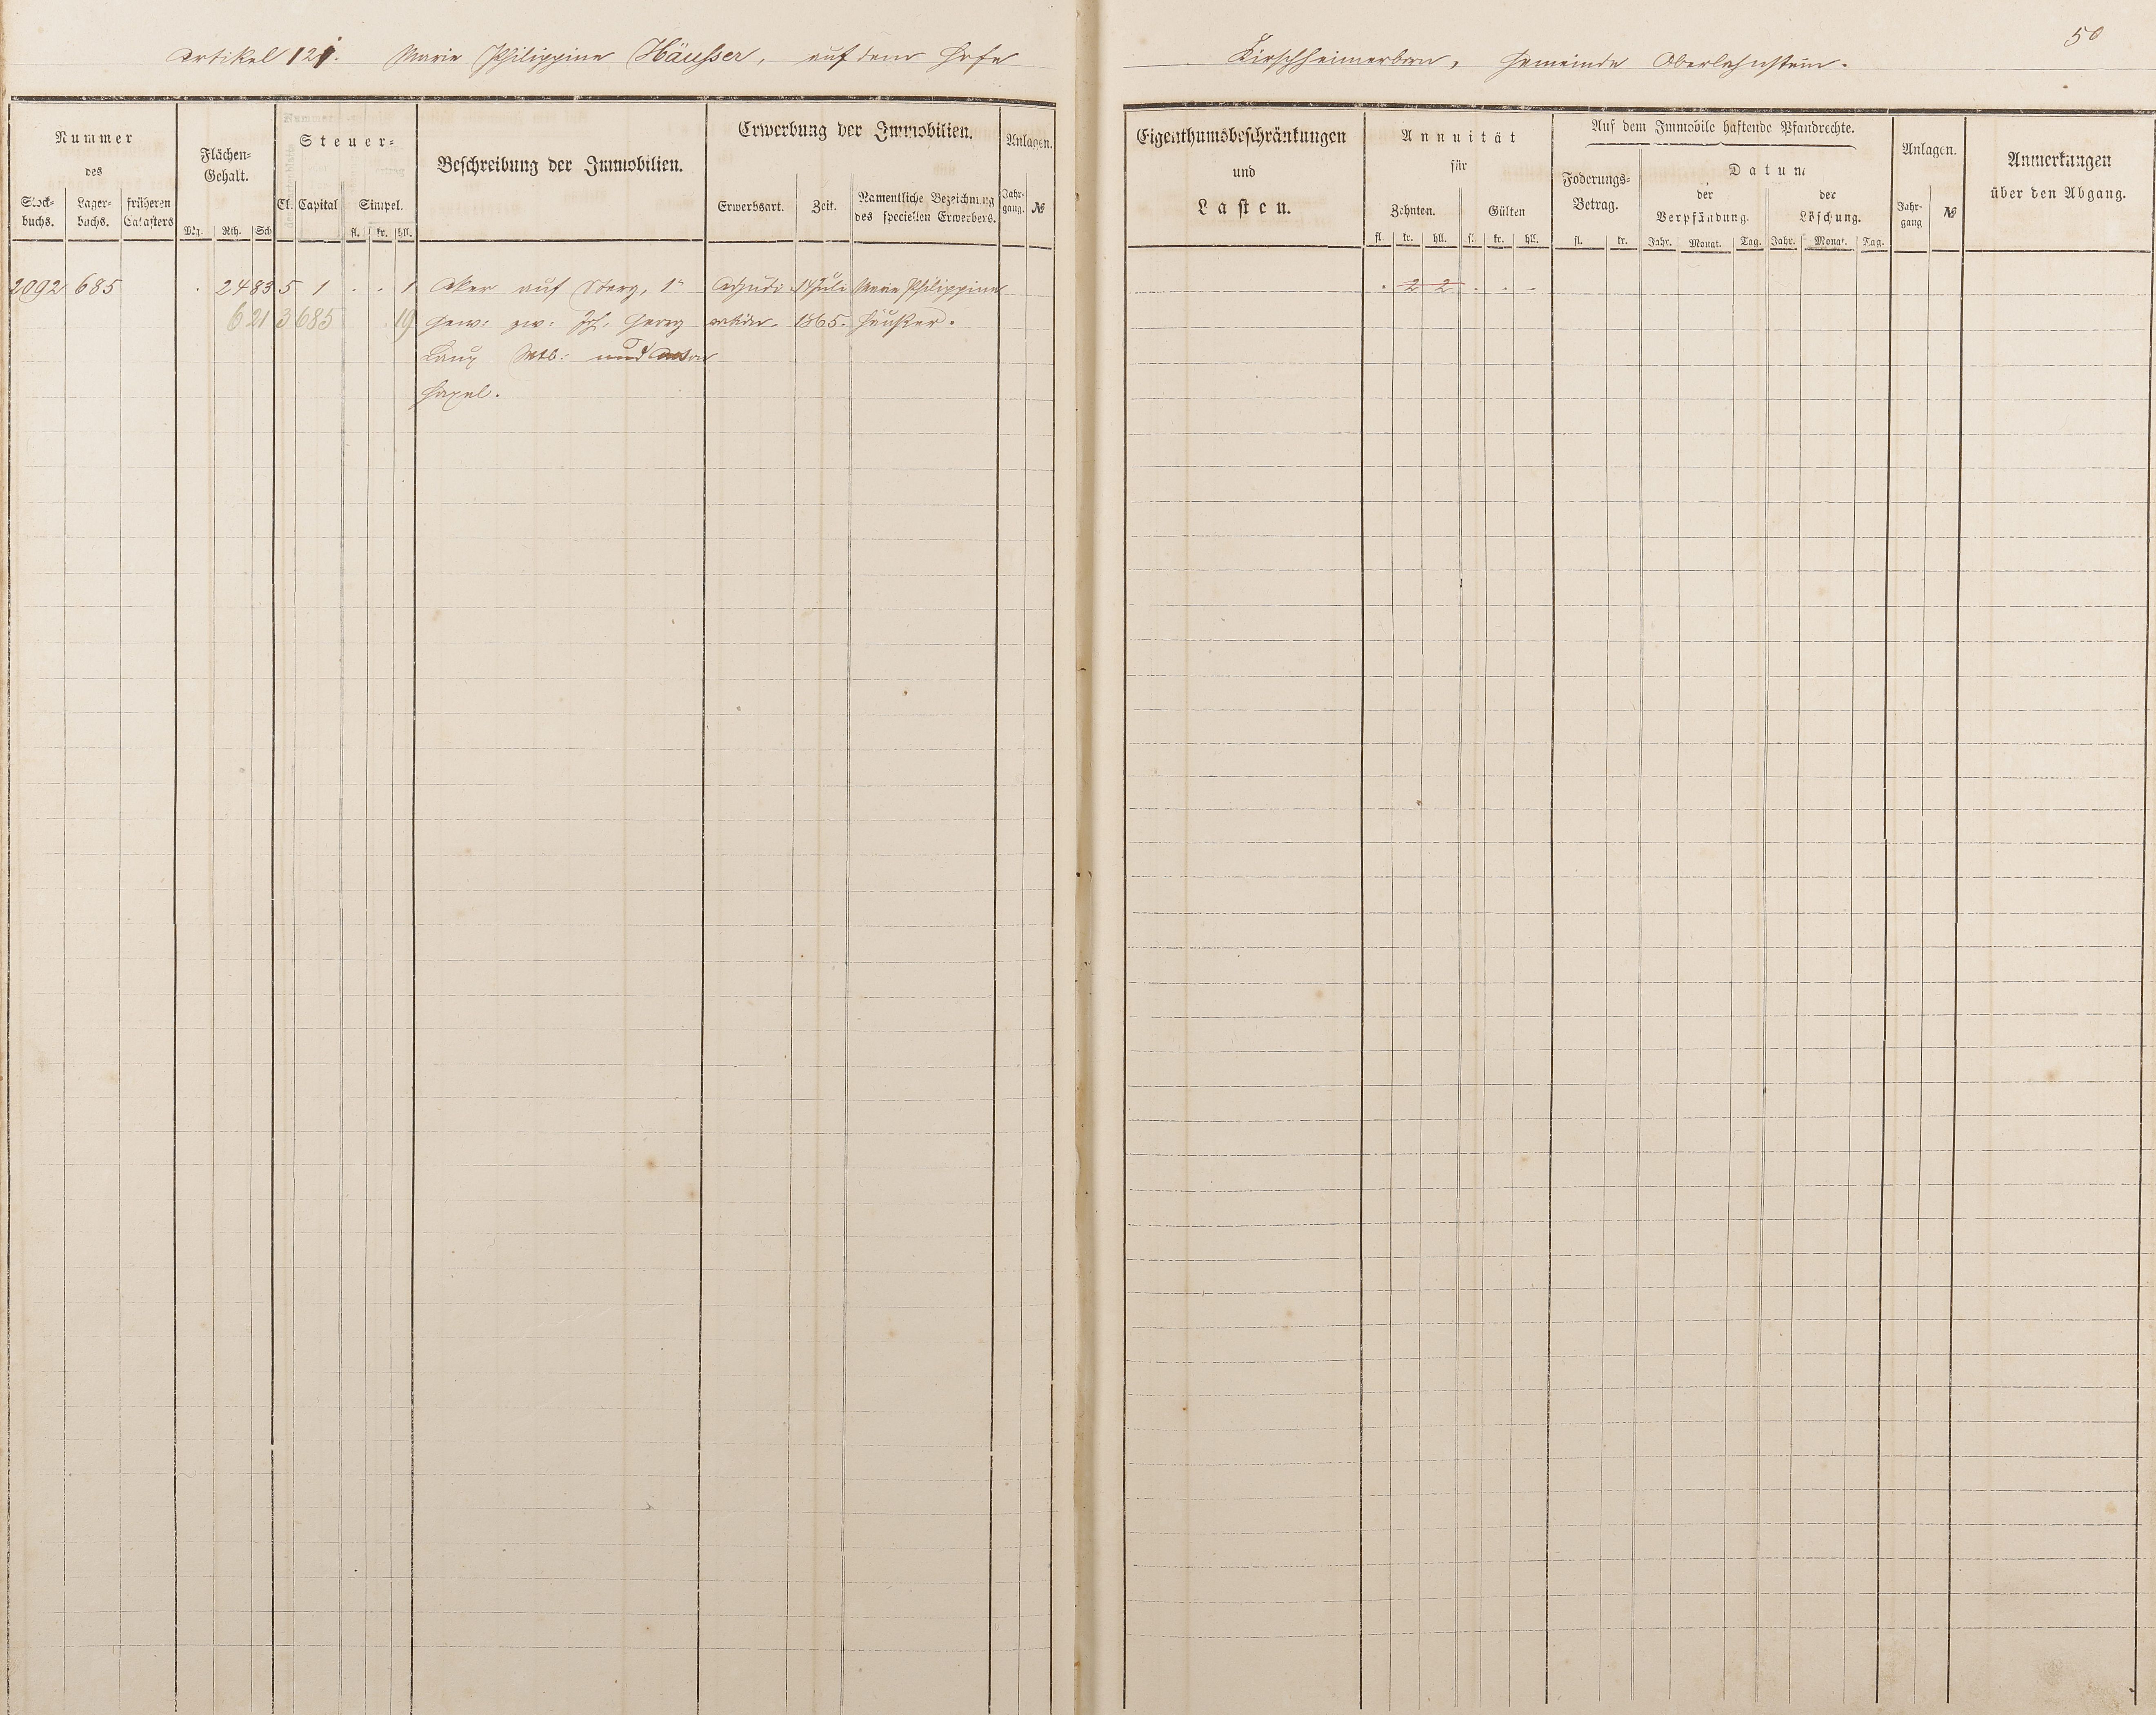 50
Artikel 121. Marie Philippine Häusser, auf dem Hofe
Kirschheimerborn, Gemeinde Oberlahnstein.
Nummer
des
Stock-
buchs.
Lager-
buchs.
früheren
Catasters
Flächen-
Gehalt.
Mg. Rth. Sch
Steuer-
Cl. Capital Simpel.
fl. kr. hll.
Beschreibung der Immobilien.
Erwerbung der Immobilien.
Erwerbsart. Zeit.
Namentliche Bezeichnung
des speciellen Erwerbers.
Anlagen.
Jahr-
gang. №
Eigenthumsbeschränkungen
und
Lasten.
Annuität
für
Zehnten. Gülten
fl. kr. hll. fl. kr. hll.
Auf dem Immobile haftende Pfandrechte.
Foderungs-
Betrag.
fl. kr.
Datum
der
Verpfändung.
der
Löschung.
Jahr. Monat. Tag. Jahr. Monat. Tag.
Anlagen.
Jahr-
gang №
Anmerkungen
über den Abgang.
2092 685 . 24 83 5 1 . . 1 Aker auf Berg, 1r Adjudi 14 Juli Marie Philippine . 2 2 . . .
6 21 3 685 19 Gew: zw: Joh. Georg cation. 1865. Häusser.
Wtb: und Anton